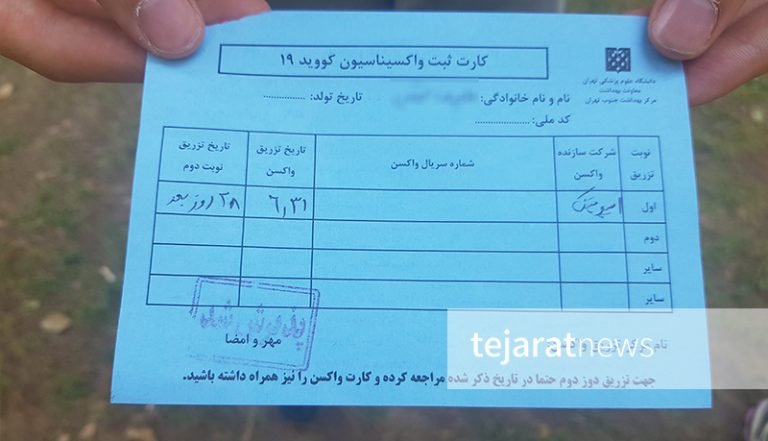 کارت ثبت واکسیناسیون کووید ۱۹
دانشگاه علوم پزشکی تهران
معاونت بهداشت
مرکز بهداشت جنوب تهران
نام و نام خانوادگی: تاریخ تولد: ...............
کد ملی: ....................
نوبت تزریق شرکت سازنده واکسن شماره سریال واکسن تاریخ تزریق واکسن تاریخ تزریق نوبت دوم
اول ۶٫۳۱ ۲۸ روز بعد
دوم
سایر
سایر
پذیرش شد
مهر و امضا
نام
tejaratnews
جهت تزریق دوز دوم حتما در تاریخ ذکر شده مراجعه کرده و کارت واکسن را نیز همراه داشته باشید.